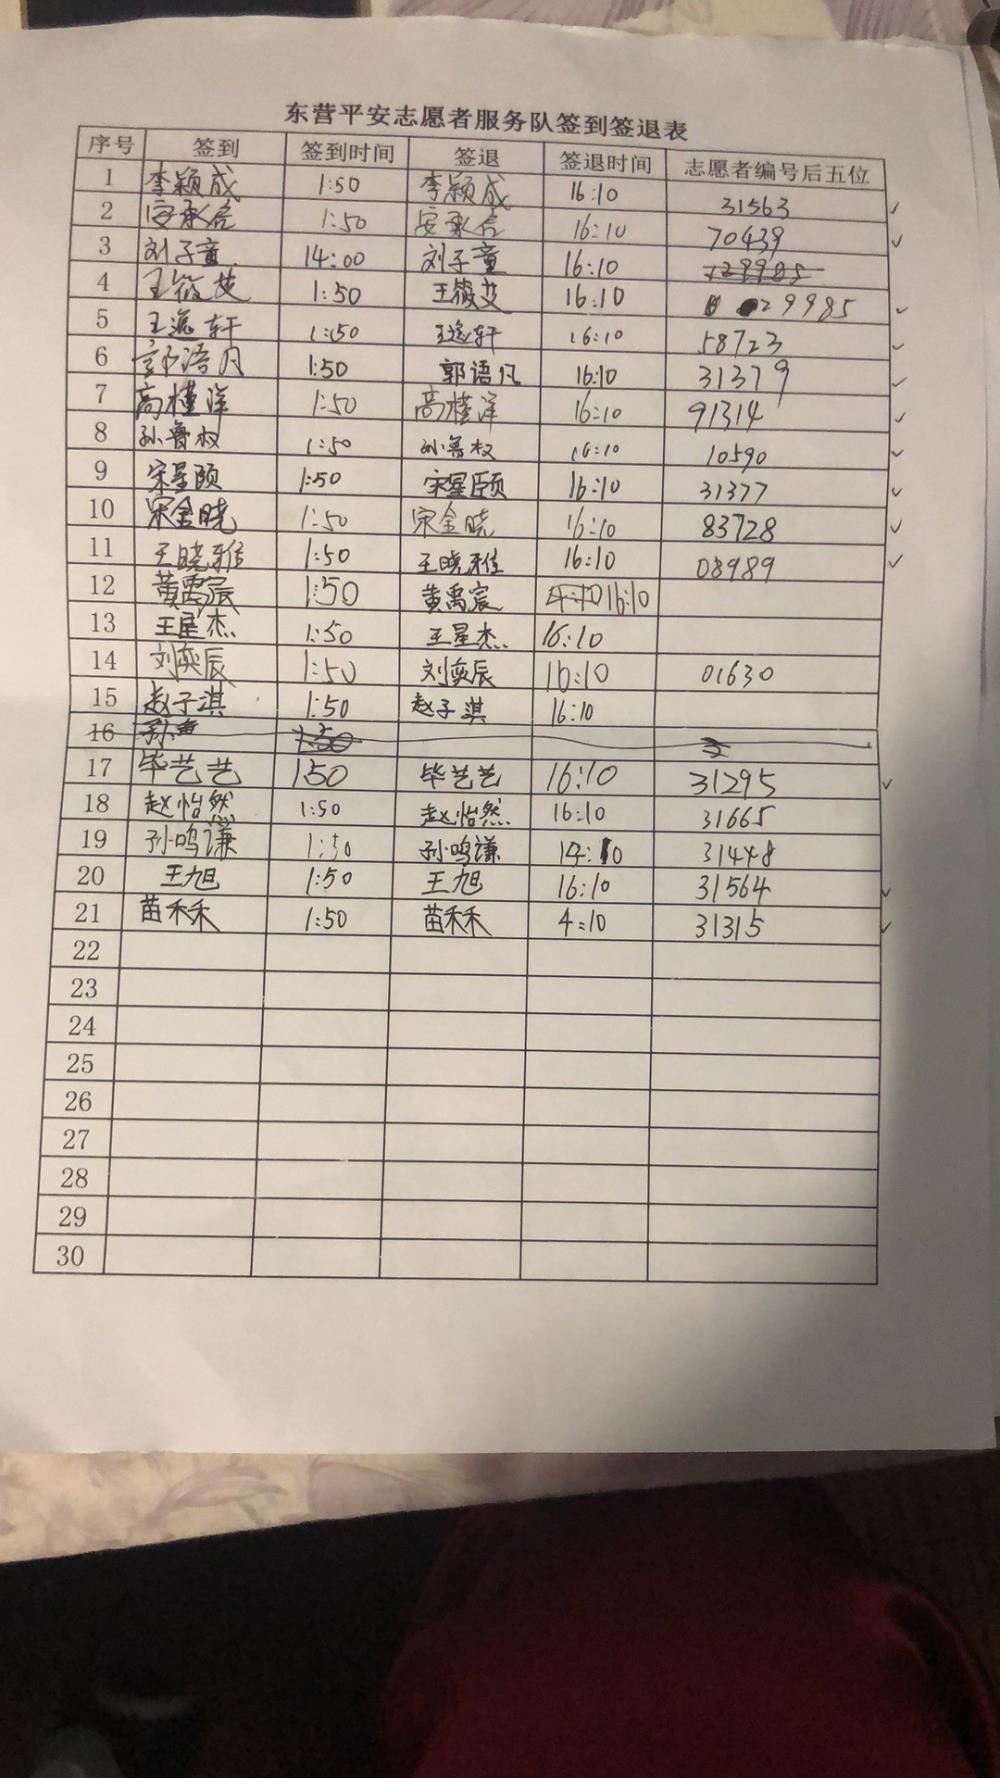 东营平安志愿者服务队签到签退表
序号 签到 签到时间 签退 签退时间 志愿者编号后五位
1 李颖成 1:50 李颖成 16:10 31563 ✓
2 安承信 1:50 安承信 16:10 70439 ✓
3 刘子童 14:00 刘子童 16:10 29985
4 王筱艾 1:50 王筱艾 16:10 29985 ✓
5 王逸轩 1:50 王逸轩 16:10 58723 ✓
6 郭语凡 1:50 郭语凡 16:10 31379 ✓
7 高槿洋 1:50 高槿洋 16:10 91314 ✓
8 孙鲁权 1:50 孙鲁权 16:10 10590 ✓
9 宋星颐 1:50 宋星颐 16:10 31377 ✓
10 宋金晓 1:50 宋金晓 16:10 83728 ✓
11 王晓雅 1:50 王晓雅 16:10 08989 ✓
12 黄禹宸 1:50 黄禹宸 16:10
13 王星杰 1:50 王星杰 16:10
14 刘奕辰 1:50 刘奕辰 16:10 01630
15 赵子淇 1:50 赵子淇 16:10
16 1:50
17 毕艺艺 1:50 毕艺艺 16:10 31295 ✓
18 赵怡然 1:50 赵怡然 16:10 31665
19 孙鸣谦 1:50 孙鸣谦 14:10 31448
20 王旭 1:50 王旭 16:10 31564 ✓
21 苗禾禾 1:50 苗禾禾 4:10 31315 ✓
22
23
24
25
26
27
28
29
30